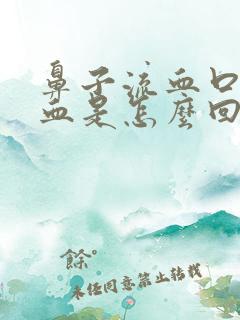 鼻子流血口
血是怎麼回
餘°
未經同意禁止轉載